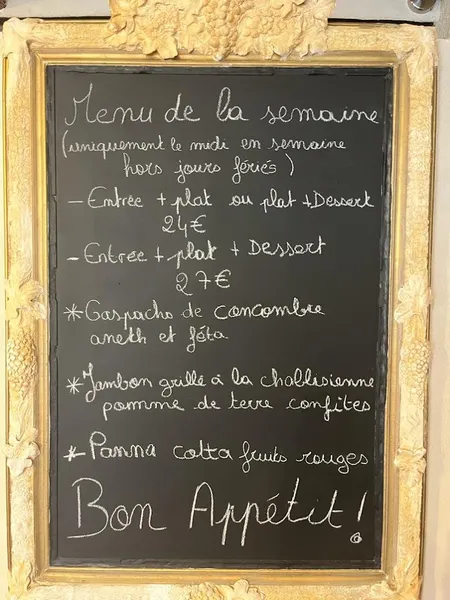 Menu de la semaine
(uniquement le midi en semaine
hors jours fériés)
- Entrée + plat ou plat + Dessert
24€
- Entree + plat + Dessert
27€
* Gaspacho de concombre
aneth et féta.
* Jambon grillé à la chablisienne
pomme de terre confites
* Panna cotta fruits rouges
Bon Appétit !